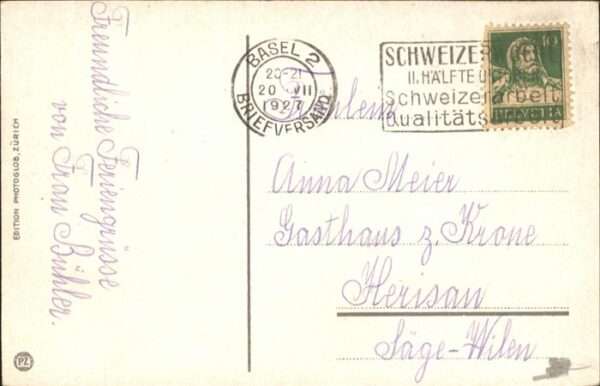 Freundliche Feriengrüsse
von Frau Bühler.
EDITION PHOTOGLOB, ZÜRICH
PZ
BASEL 2
20-21
20 VII
1927
BRIEFVERSAND
SCHWEIZER
II. HÄLFTE
Schweizerarbeit
Qualitäts
10
HELVETIA
Fräulein
Anna Meier
Gasthaus z. Krone
Herisau
Säge-Wilen